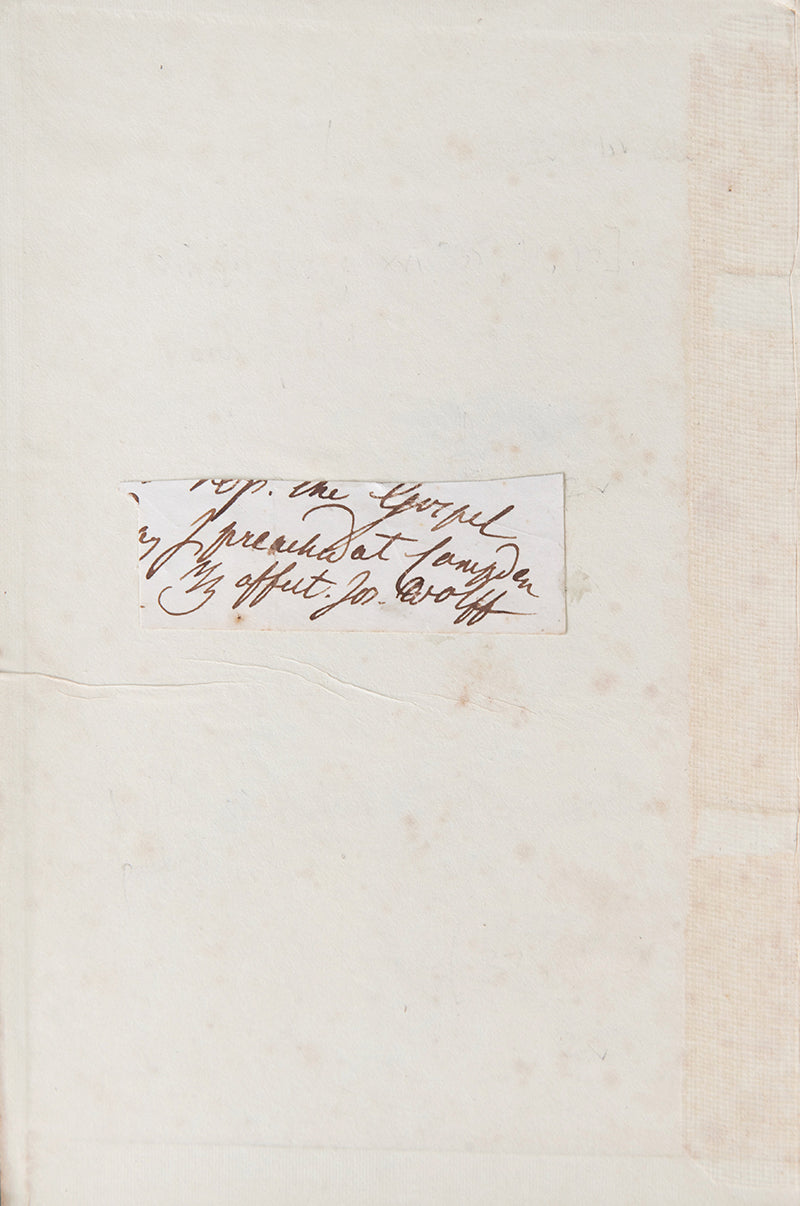 the Gospel
I preached at Campden
Yr affect. Jos. Wolff